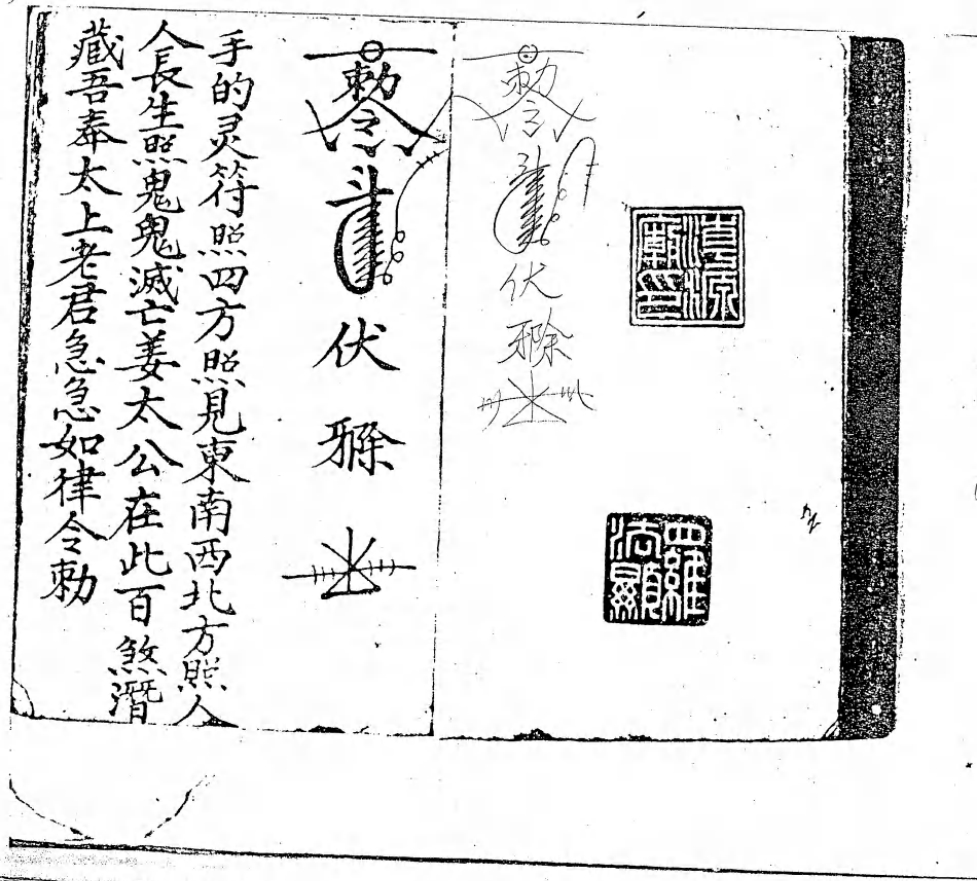 源廟印
法顯
勅令
伏
勅令
斗
伏
手的灵符照四方照見東南西北方照人
人長生照鬼鬼滅亡姜太公在此百煞潛
藏吾奉太上老君急急如律令勅